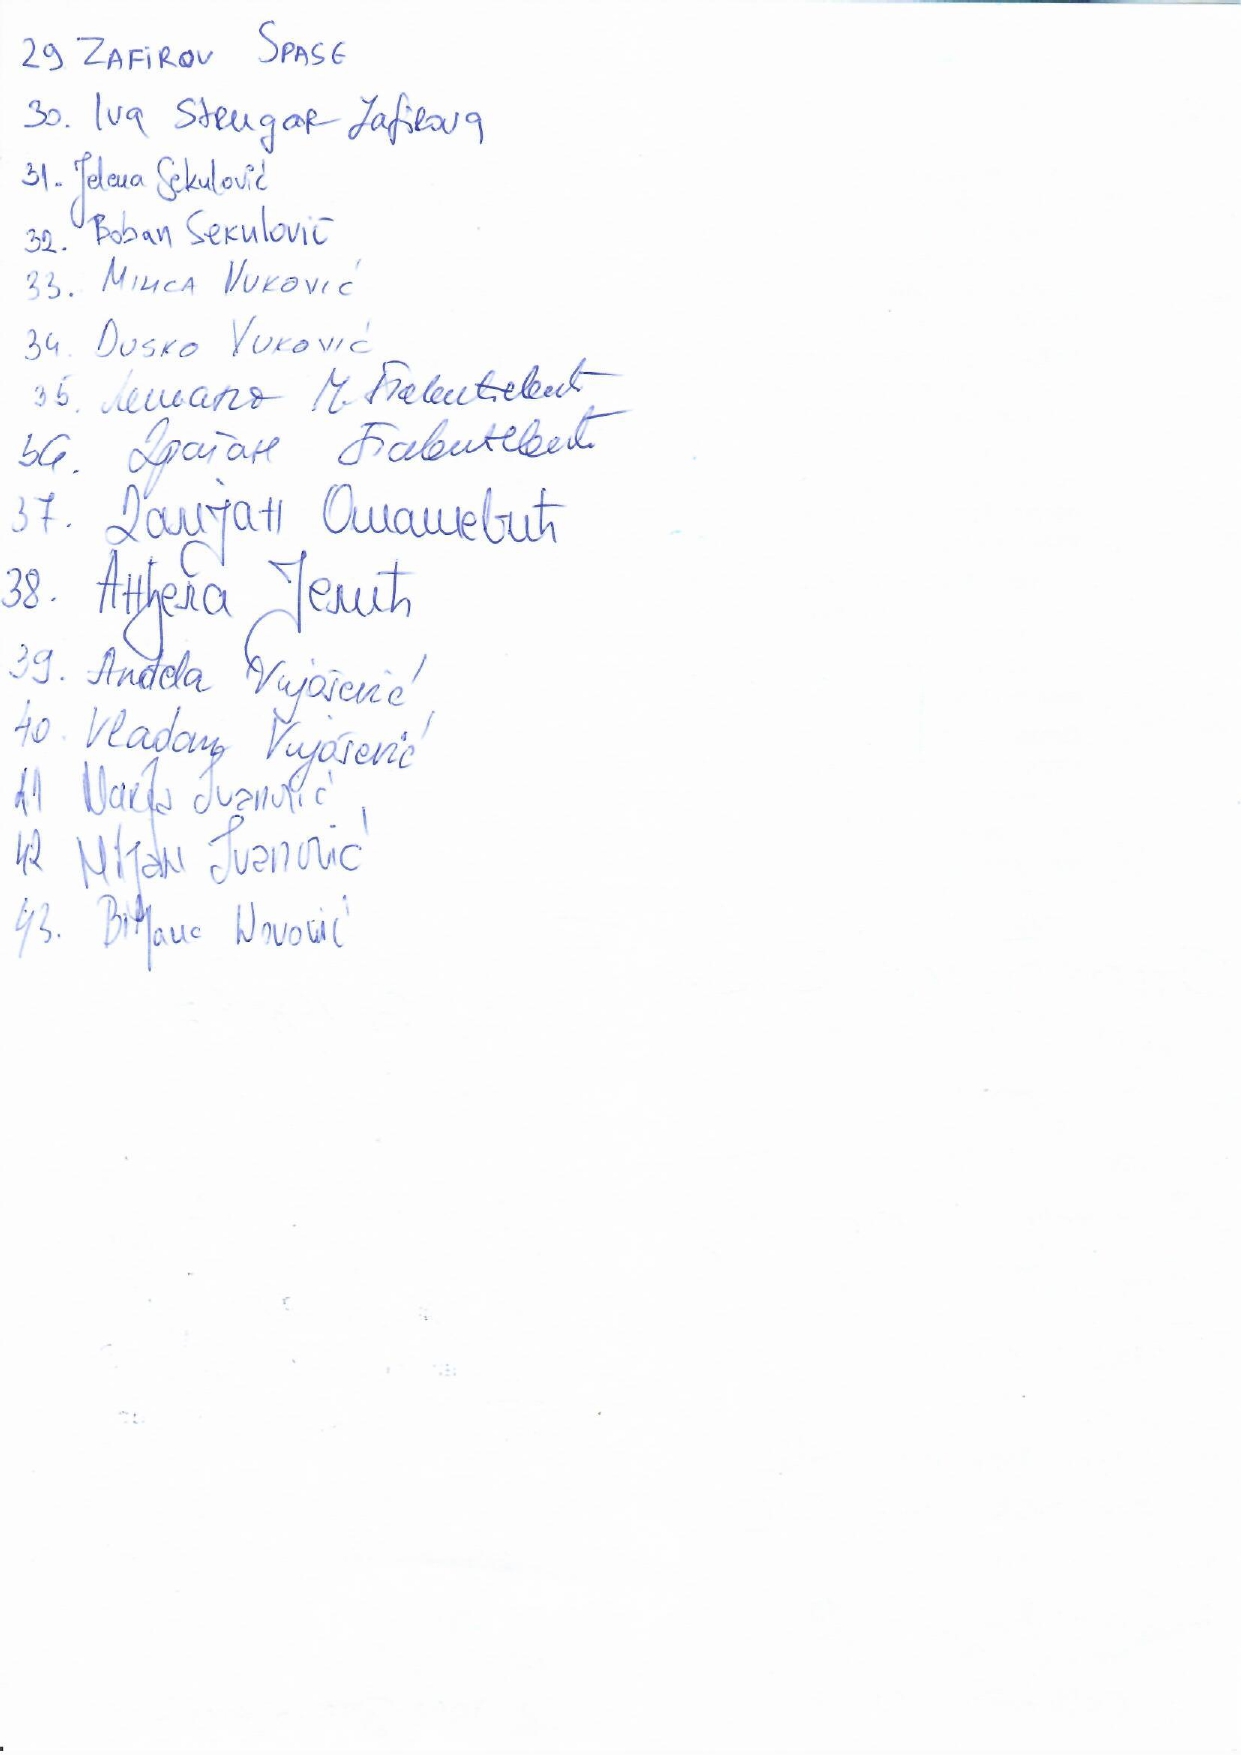 29 ZAFIROV SPASE
30. Iva Stengar Zafirova
31. Jelena Sekulović
32. Boban Sekulović
33. MILICA VUKOVIĆ
34. DUSKO VUKOVIĆ
35. М.
36. Драган
37. Дамјан Оташевић
38. Анђела Јелић
39. Anđela Vujošević
40. Vladana Vujošević
41 Marija Ivanović
42 Mijan Ivanović
43. Biljana Novović